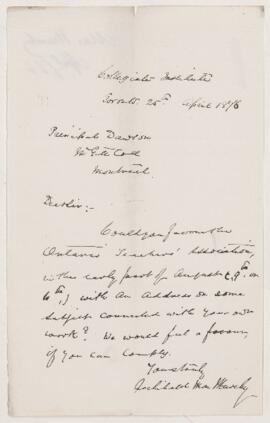 Collegiate Institute
Toronto 25th April 1878
Principal Dawson
McGill Coll
Montreal
Dear Sir:-
Could you favour the
Ontario Teachers' Association,
in the early part of August
with an Address on some
subject connected with your own
work? We would feel a favour,
if you can comply.
Yours truly
Archibald MacMurchy